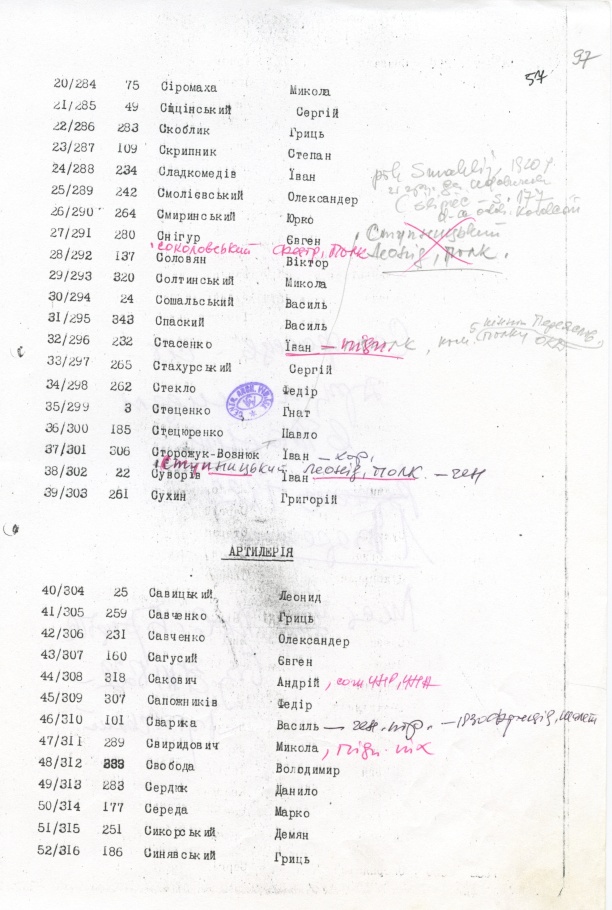 97
57
20/284 75 Сіромаха Микола
21/285 49 Січинський Сергій
22/286 283 Скоблик Гриць
23/287 109 Скрипник Степан
24/288 234 Сладкомедів Іван
25/289 242 Смолієвський Олександер
26/290 264 Смиринський Юрко
27/291 280 Снігур Євген
Соколовський полк
28/292 137 Соловян Віктор
Ступницький
Леонід, полк.
29/293 320 Солтинський Микола
30/294 24 Сошальський Василь
31/295 343 Спаский Василь
32/296 232 Стасенко Іван
33/297 265 Стахурський Сергій
34/298 262 Стекло Федір
35/299 3 Стеценко Гнат
36/300 185 Стецюренко Павло
37/301 306 Сторожук-Вознюк Іван – хор.
Ступницький Леонід, полк – ген
38/302 22 Суворів Іван
39/303 261 Сухин Григорій
АРТИЛЕРІЯ
40/304 25 Савицький Леонид
41/305 259 Савченко Гриць
42/306 231 Савченко Олександер
43/307 160 Сагусий Євген
44/308 318 Сакович Андрій, сотн. УНР, УНА
45/309 307 Сапожників Федір
46/310 101 Сварика Василь
47/311 289 Свиридович Микола
48/312 Свобода Володимир
49/313 283 Сердюк Данило
50/314 177 Середа Марко
51/315 251 Сикорський Демян
52/316 186 Синявський Гриць